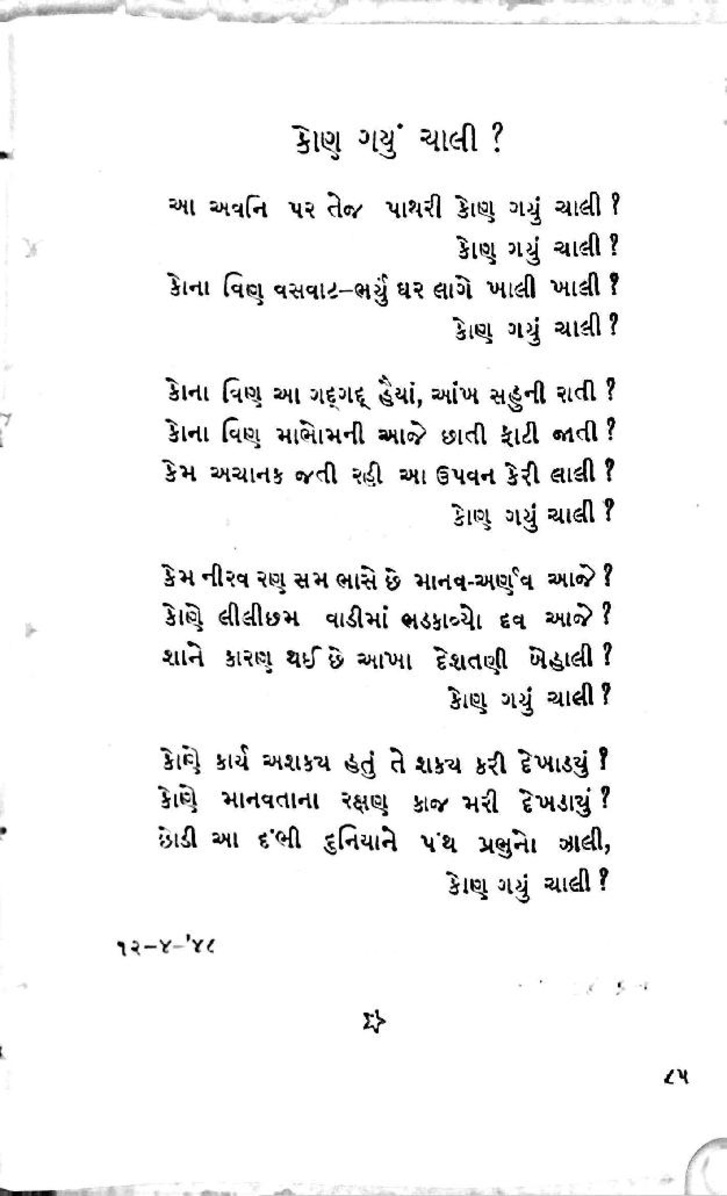 કોણ ગયું ચાલી ?
આ અવનિ પર તેજ પાથરી કોણ ગયું ચાલી ?
કોણ ગયું ચાલી ?
કોના વિણ વસવાટ–ભર્યું ઘર લાગે ખાલી ખાલી ?
કોણ ગયું ચાલી ?
કોના વિણ આ ગદ્‌ગદ્ હૈયાં, આંખ સહુની રાતી ?
કોના વિણ માભોમની આજે છાતી ફાટી જાતી ?
કેમ અચાનક જતી રહી આ ઉપવન કેરી લાલી ?
કોણ ગયું ચાલી ?
કેમ નીરવ રણ સમ ભાસે છે માનવ-અર્ણવ આજે ?
કોણે લીલીછમ વાડીમાં ભડકાવ્યો દવ આજે ?
શાને કારણ થઈ છે આખા દેશતણી બેહાલી ?
કોણ ગયું ચાલી ?
કોણે કાર્ય અશક્ય હતું તે શક્ય કરી દેખાડયું ?
કોણે માનવતાના રક્ષણ કાજ મરી દેખડાયું ?
છોડી આ દંભી દુનિયાને પંથ પ્રભુનો ઝાલી,
કોણ ગયું ચાલી ?
૧૨–૪–'૪૮
૮૫